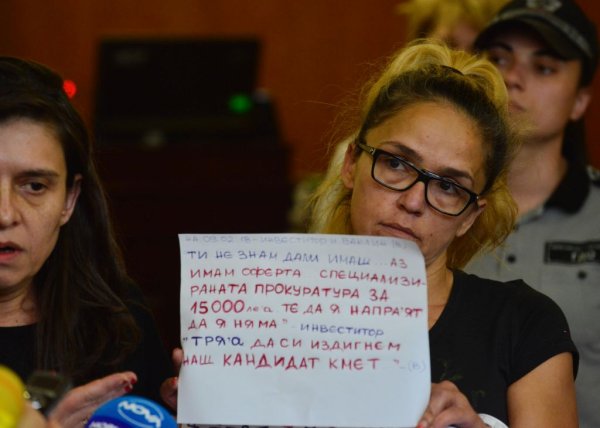 НА 09.02.18 - ИНВЕСТИТОР И ВАКЛИН (В.)
ТИ НЕ ЗНАМ ДАЛИ ИМАШ... АЗ
ИМАМ ОФЕРТА СПЕЦИАЛИЗИ-
РАНАТА ПРОКУРАТУРА ЗА
15000 лева ТЕ ДА Я НАПРА'ЯТ
ДА Я НЯМА" - ИНВЕСТИТОР
"ТРЯ'А ДА СИ ИЗДИГНЕМ
НАШ КАНДИДАТ КМЕТ..." - (В)
NOVA